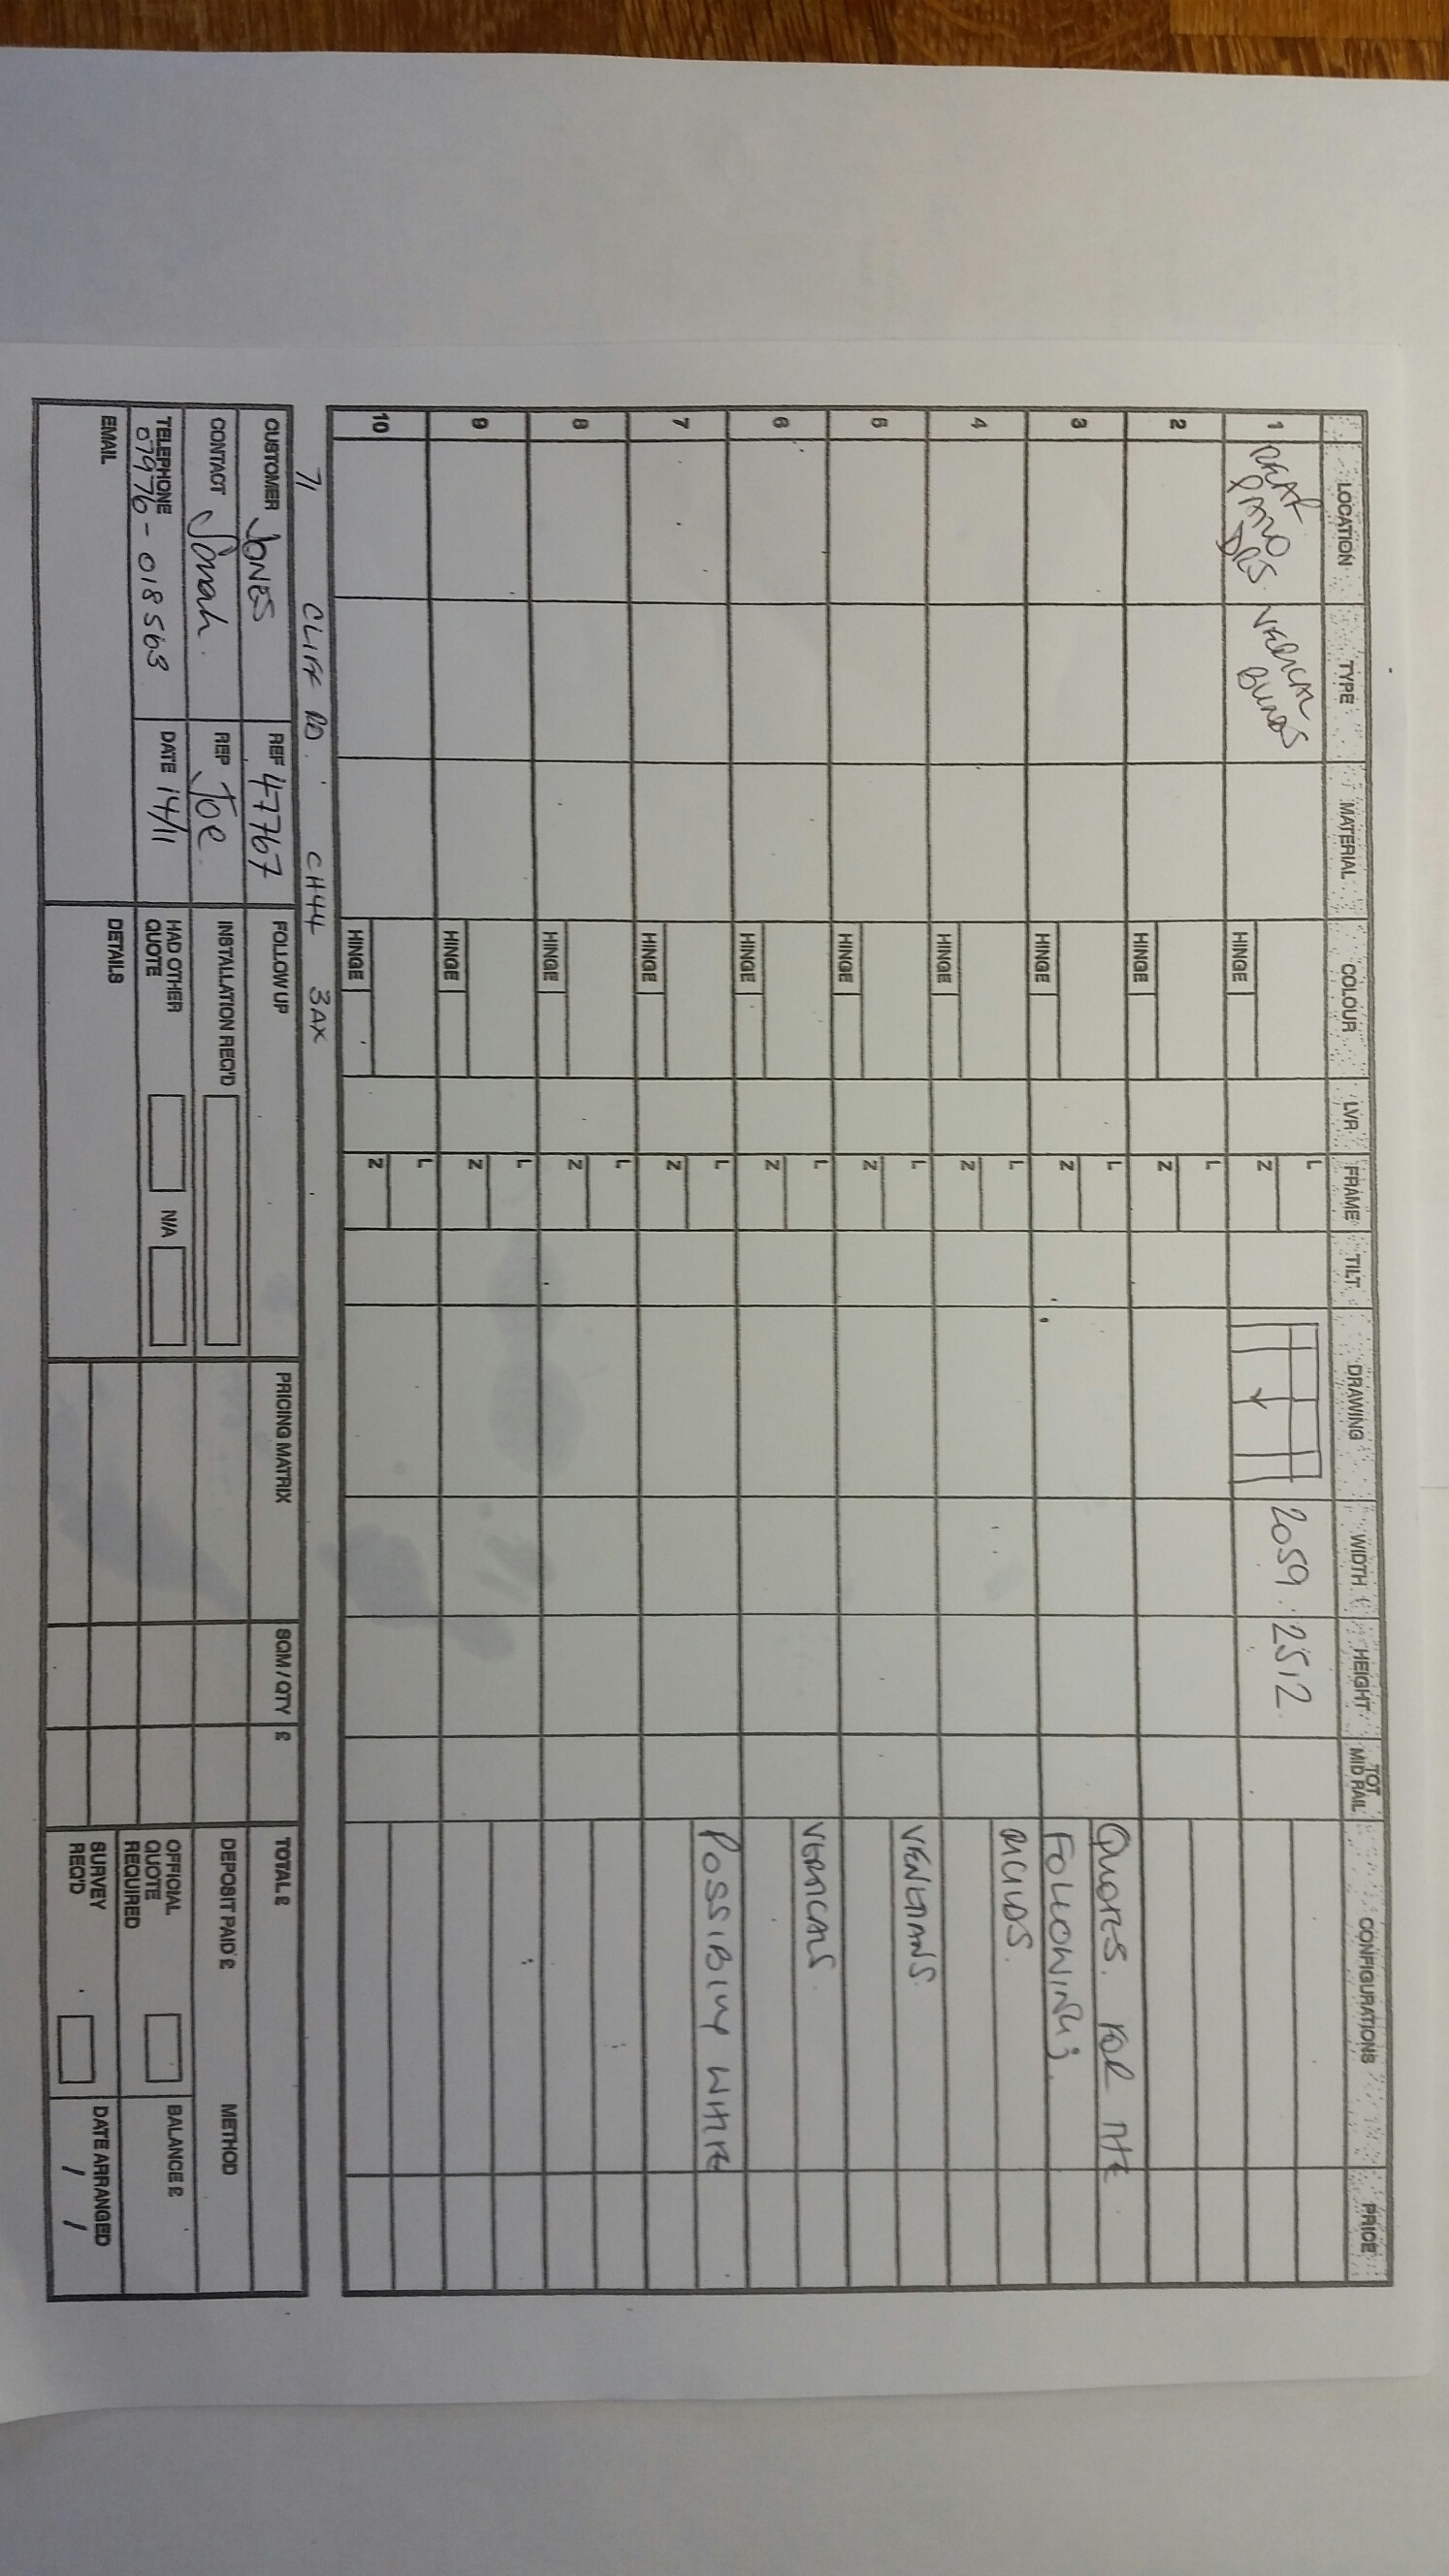 LOCATION TYPE MATERIAL COLOUR LVR FRAME TILT DRAWING WIDTH HEIGHT TOT MID RAIL CONFIGURATIONS PRICE
1 REAR PATIO DRS. VERTICAL BLINDS HINGE L Z 2059 2512
2 HINGE L Z
QUOTES. FOR THE
3 HINGE L Z FOLLOWING;
4 HINGE L Z
VENETIANS
5 HINGE L Z
VERTICALS
6 HINGE L Z
POSSIBLY WHITE
7 HINGE L Z
8 HINGE L Z
9 HINGE L Z
10 HINGE L Z
71 CLIFF RD. CH44 3AX
CUSTOMER JONES REF 47767 FOLLOW UP PRICING MATRIX SQM / QTY £ TOTAL £
CONTACT Sarah. REP Joe. INSTALLATION REQ'D DEPOSIT PAID £ METHOD
TELEPHONE 07976-018563 DATE 14/11 HAD OTHER QUOTE N/A OFFICIAL QUOTE REQUIRED BALANCE £
EMAIL DETAILS SURVEY REQ'D DATE ARRANGED / /